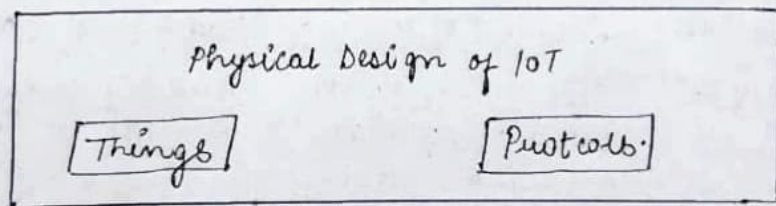 Physical Design of IOT
Things
Protcols.